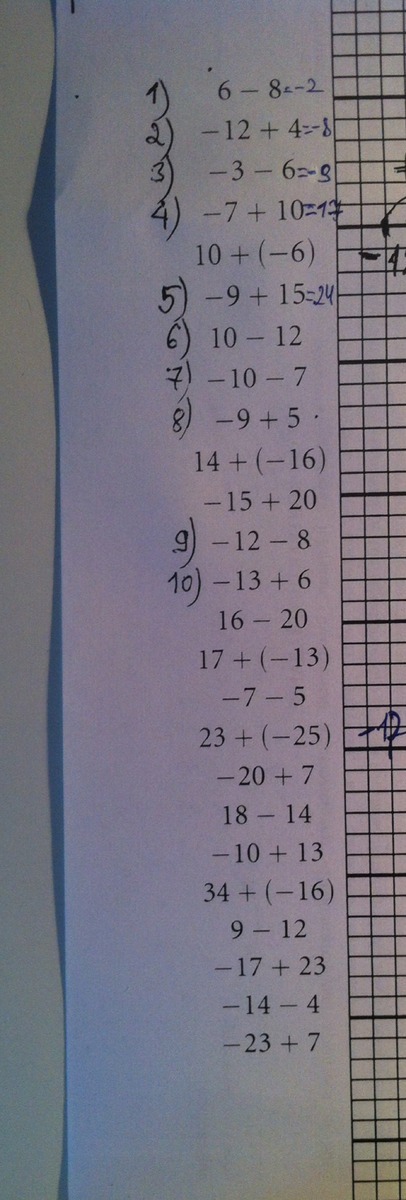 1) 6 − 8=-2
2) −12 + 4=-8
3) −3 − 6=-9
4) −7 + 10=17
10 + (−6)
5) −9 + 15=24
6) 10 − 12
7) −10 − 7
8) −9 + 5
14 + (−16)
−15 + 20
9) −12 − 8
10) −13 + 6
16 − 20
17 + (−13)
−7 − 5
23 + (−25)
−20 + 7
18 − 14
−10 + 13
34 + (−16)
9 − 12
−17 + 23
−14 − 4
−23 + 7